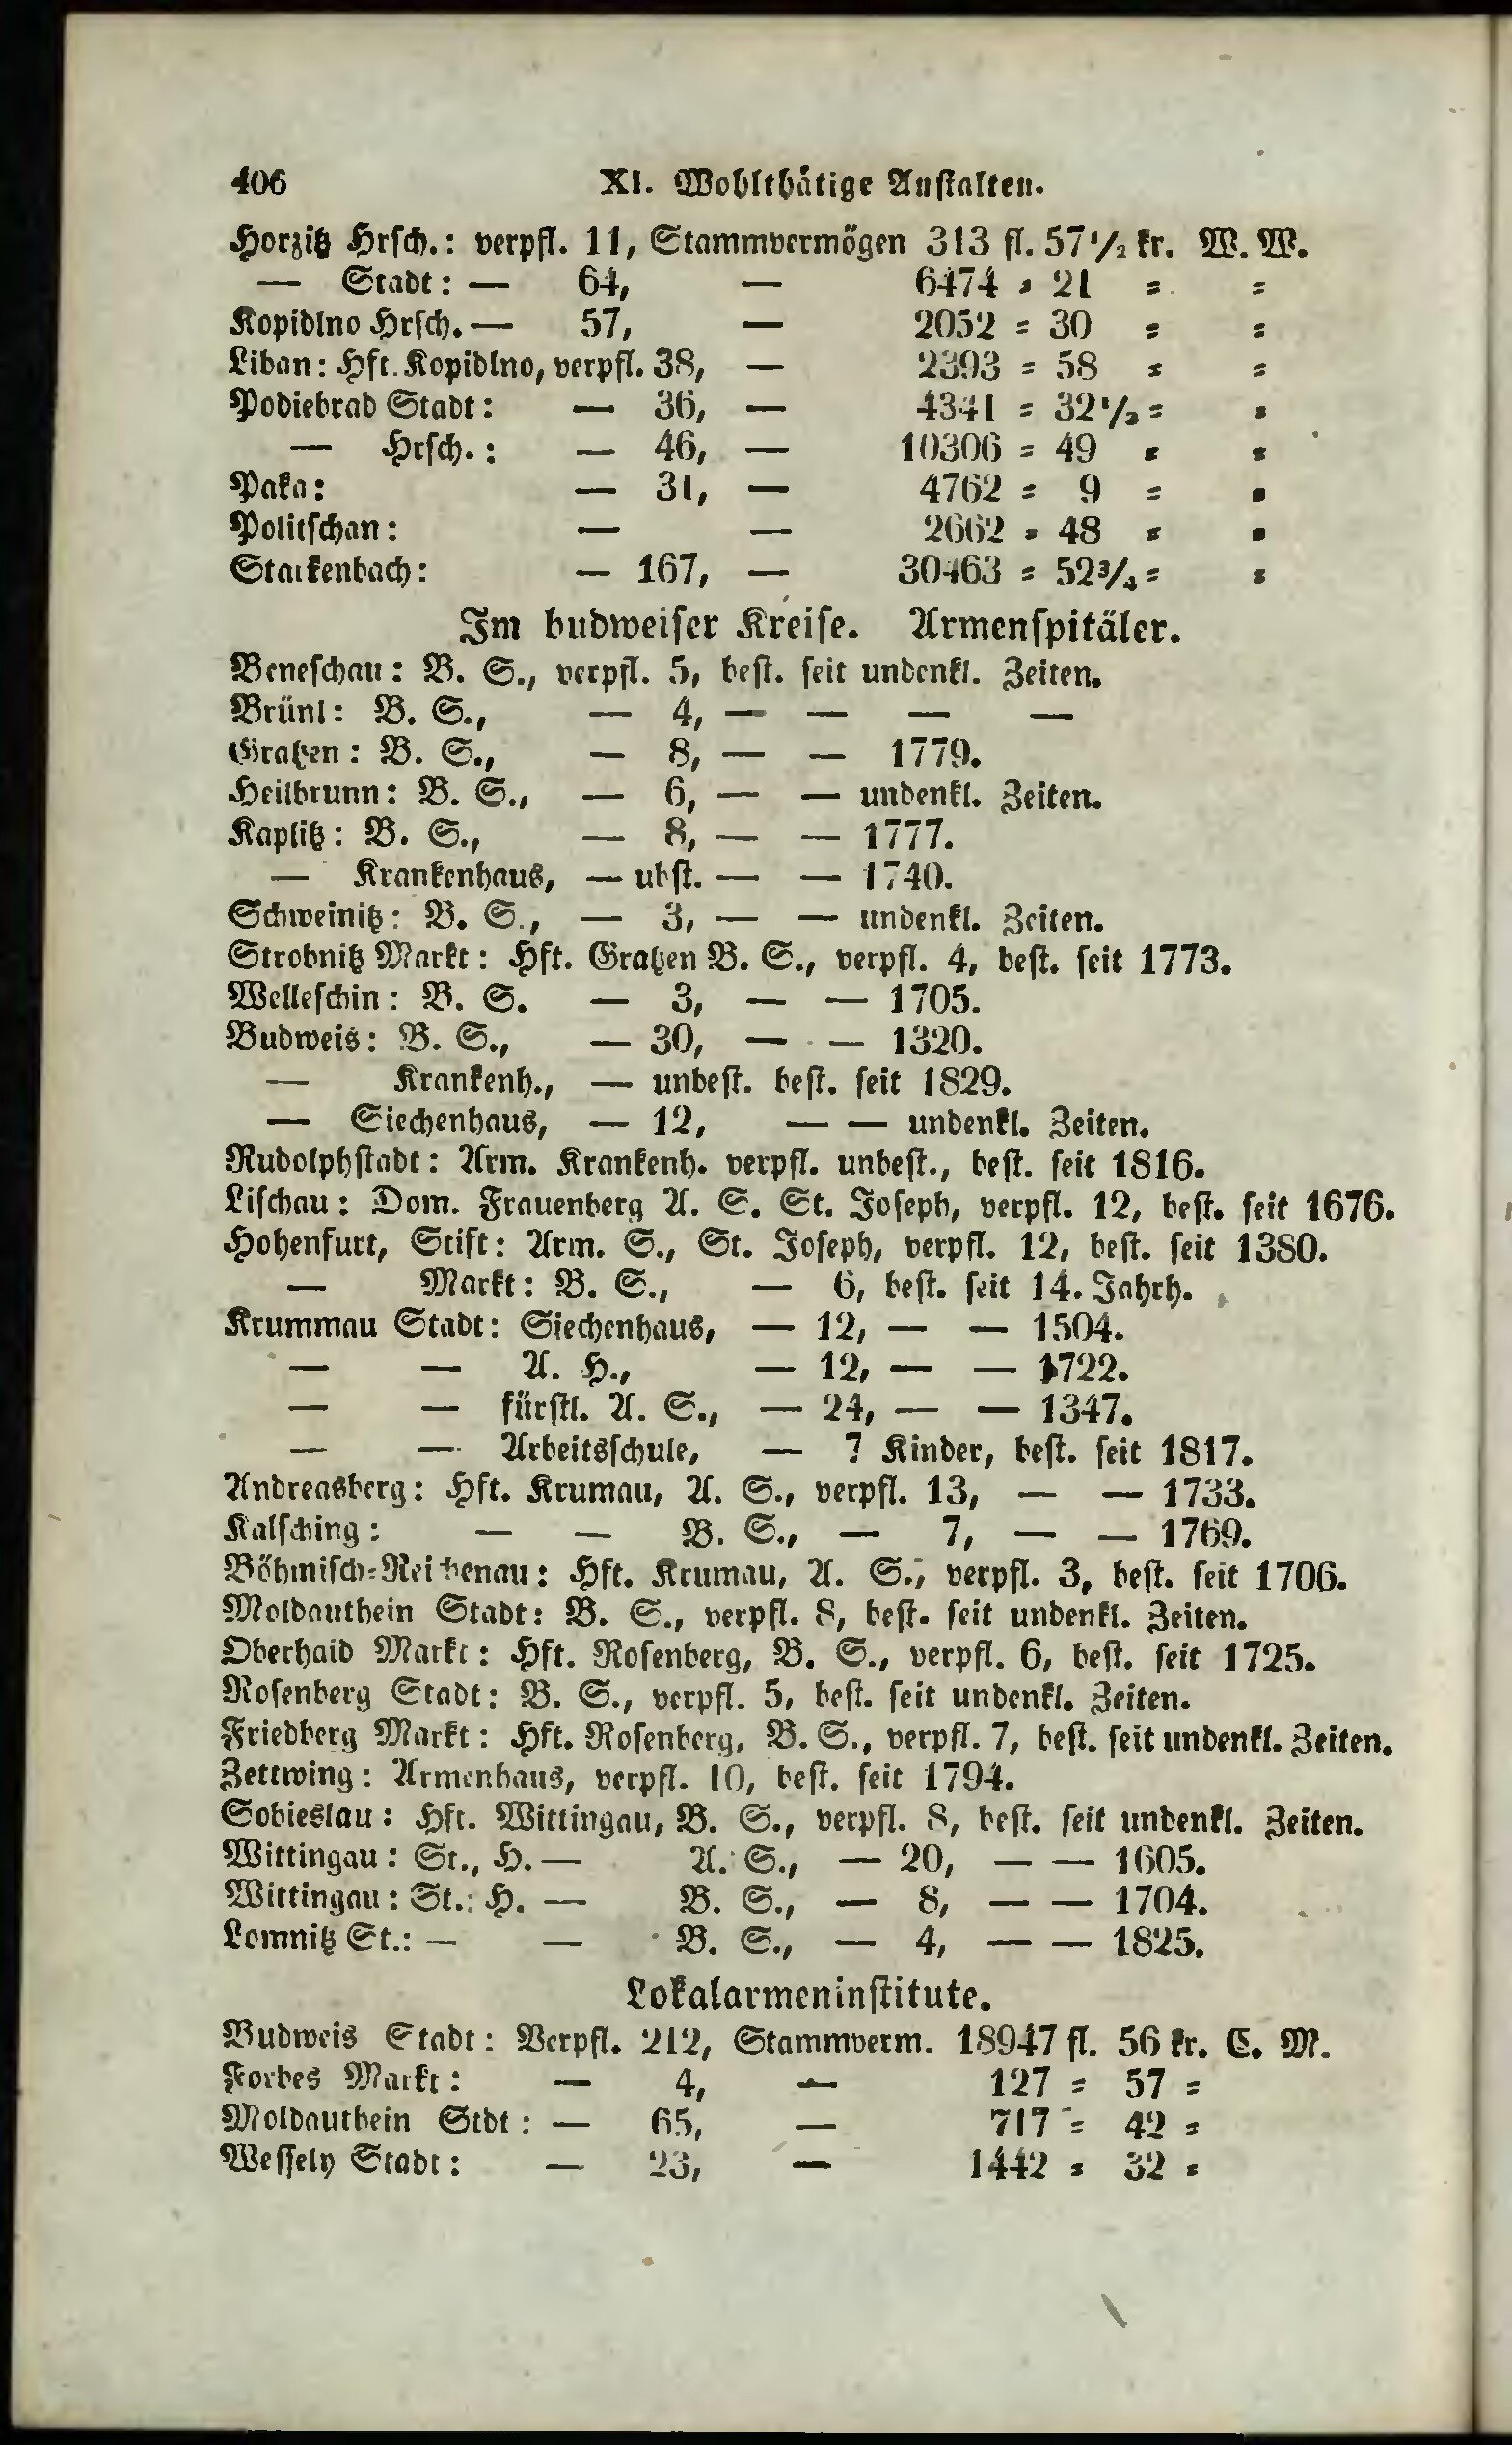 406 XI. Wohlthätige Anstalten.
Horzitz Hrsch.: verpfl. 11, Stammvermögen 313 fl. 57 1/2 kr. W. W.
— Stadt: — 64, — 6474 = 21 = =
Kopidlno Hrsch. — 57, — 2052 = 30 = =
Liban: Hft. Kopidlno, verpfl. 38, — 2393 = 58 = =
Podiebrad Stadt: — 36, — 4341 = 32 1/2 = =
— Hrsch.: — 46, — 10306 = 49 = =
Paka: — 31, — 4762 = 9 = =
Politschan: — — 2662 = 48 = =
Starkenbach: — 167, — 30463 = 52 3/4 = =
Im budweiser Kreise. Armenspitäler.
Beneschau: B. S., verpfl. 5, best. seit undenkl. Zeiten.
Brünl: B. S., — 4, — — — —
Gratzen: B. S., — 8, — — 1779.
Heilbrunn: B. S., — 6, — — undenkl. Zeiten.
Kaplitz: B. S., — 8, — — 1777.
— Krankenhaus, — ubst. — — 1740.
Schweinitz: B. S., — 3, — — undenkl. Zeiten.
Strobnitz Markt: Hft. Gratzen B. S., verpfl. 4, best. seit 1773.
Welleschin: B. S. — 3, — — 1705.
Budweis: B. S., — 30, — — 1320.
— Krankenh., — unbest. best. seit 1829.
— Siechenhaus, — 12, — — undenkl. Zeiten.
Rudolphstadt: Arm. Krankenh. verpfl. unbest., best. seit 1816.
Lischau: Dom. Frauenberg A. S. St. Joseph, verpfl. 12, best. seit 1676.
Hohenfurt, Stift: Arm. S., St. Joseph, verpfl. 12, best. seit 1380.
— Markt: B. S., — 6, best. seit 14. Jahrh.
Krummau Stadt: Siechenhaus, — 12, — — 1504.
— — A. H., — 12, — — 1722.
— — fürstl. A. S., — 24, — — 1347.
— — Arbeitsschule, — ? Kinder, best. seit 1817.
Andreasberg: Hft. Krumau, A. S., verpfl. 13, — — 1733.
Kalsching: — — B. S., — 7, — — 1769.
Böhmisch=Reichenau: Hft. Krumau, A. S., verpfl. 3, best. seit 1706.
Moldauthein Stadt: B. S., verpfl. 8, best. seit undenkl. Zeiten.
Oberhaid Markt: Hft. Rosenberg, B. S., verpfl. 6, best. seit 1725.
Rosenberg Stadt: B. S., verpfl. 5, best. seit undenkl. Zeiten.
Friedberg Markt: Hft. Rosenberg, B. S., verpfl. 7, best. seit undenkl. Zeiten.
Zettwing: Armenhaus, verpfl. 10, best. seit 1794.
Sobieslau: Hft. Wittingau, B. S., verpfl. 8, best. seit undenkl. Zeiten.
Wittingau: St., H. — A. S., — 20, — — 1605.
Wittingau: St., H. — B. S., — 8, — — 1704.
Lomnitz St.: — — B. S., — 4, — — 1825.
Lokalarmeninstitute.
Budweis Stadt: Verpfl. 212, Stammverm. 18947 fl. 56 kr. C. M.
Forbes Markt: — 4, — 127 = 57 =
Moldauthein Stdt: — 65, — 717 = 42 =
Wessely Stadt: — 23, — 1442 = 32 =